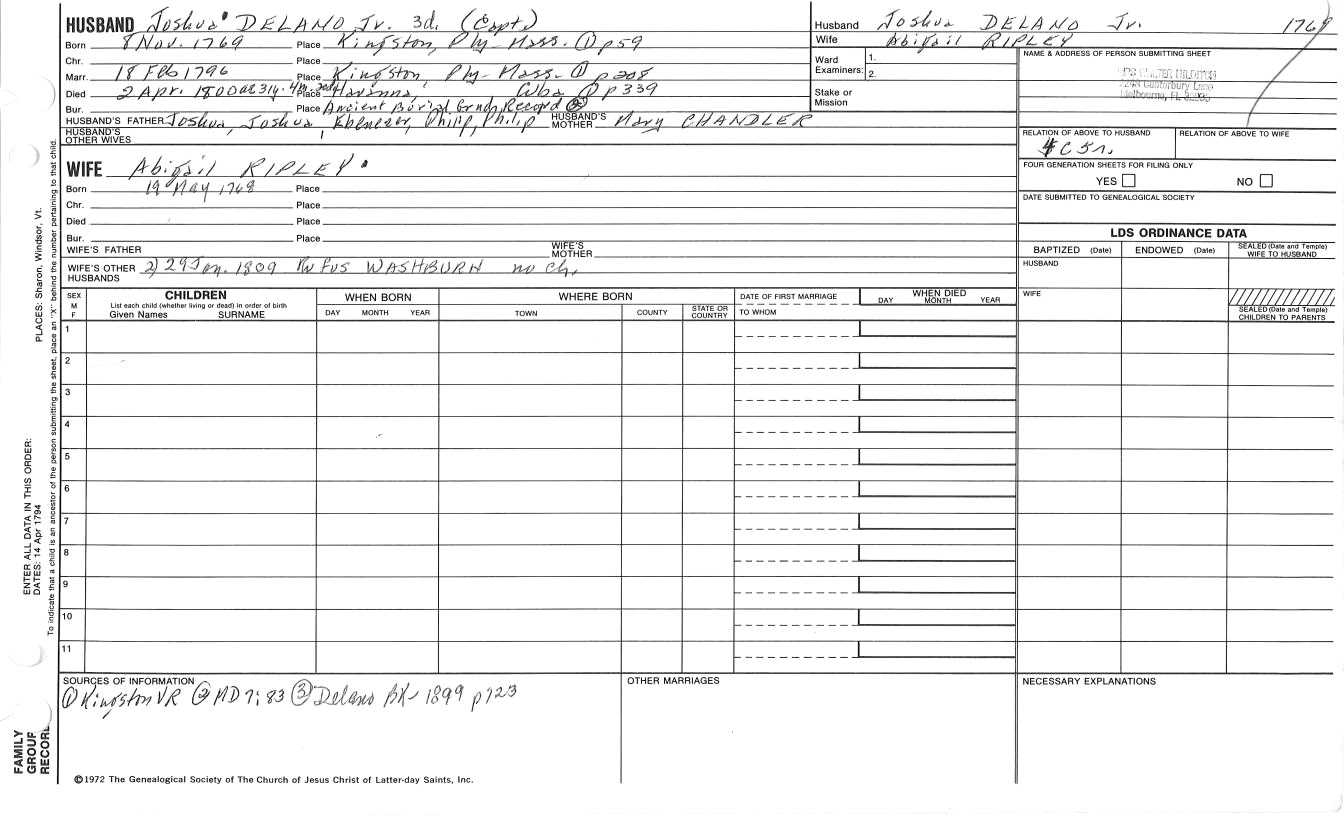 HUSBAND Joshua DELANO Jr. 3d. (Capt)
Born 8 Nov. 1769 Place Kingston, Ply-Mass. ① p59
Chr. Place
Marr. 18 Feb 1796 Place Kingston, Ply-Mass. ① p208
Died 2 Apr. 1800 ae 31y. 4m. Place Havanna, Cuba ① p339
Bur. Place Ancient Burial Grnds, Record ②
HUSBAND'S FATHER Joshua, Joshua, Ebenezer, Philip, Philip HUSBAND'S MOTHER Mary CHANDLER
HUSBAND'S OTHER WIVES
WIFE Abigail RIPLEY
Born 19 May 1768 Place
Chr. Place
Died Place
Bur. Place
WIFE'S FATHER WIFE'S MOTHER
WIFE'S OTHER HUSBANDS 2) 29 Jan. 1809 Rufus WASHBURN no ch.
Husband Joshua DELANO Jr. 1769
Wife Abigail RIPLEY
Ward Examiners: 1. 2.
Stake or Mission
NAME & ADDRESS OF PERSON SUBMITTING SHEET
Canterbury Lane
Melbourne, FL
RELATION OF ABOVE TO HUSBAND RELATION OF ABOVE TO WIFE
FOUR GENERATION SHEETS FOR FILING ONLY
YES NO
DATE SUBMITTED TO GENEALOGICAL SOCIETY
LDS ORDINANCE DATA
BAPTIZED (Date) ENDOWED (Date) SEALED (Date and Temple) WIFE TO HUSBAND
HUSBAND
WIFE
SEALED (Date and Temple) CHILDREN TO PARENTS
SEX M F
CHILDREN
List each child (whether living or dead) in order of birth
Given Names SURNAME
WHEN BORN
DAY MONTH YEAR
WHERE BORN
TOWN COUNTY STATE OR COUNTRY
DATE OF FIRST MARRIAGE
TO WHOM
WHEN DIED
DAY MONTH YEAR
1
2
3
4
5
6
7
8
9
10
11
SOURCES OF INFORMATION
① Kingston VR ② MD 7:83 ③ Delano BK- 1899 p723
OTHER MARRIAGES
NECESSARY EXPLANATIONS
©1972 The Genealogical Society of The Church of Jesus Christ of Latter-day Saints, Inc.
FAMILY GROUP RECORD
ENTER ALL DATA IN THIS ORDER:
DATES: 14 Apr 1794 PLACES: Sharon, Windsor, Vt.
To indicate that a child is an ancestor of the person submitting the sheet, place an "X" behind the number pertaining to that child.